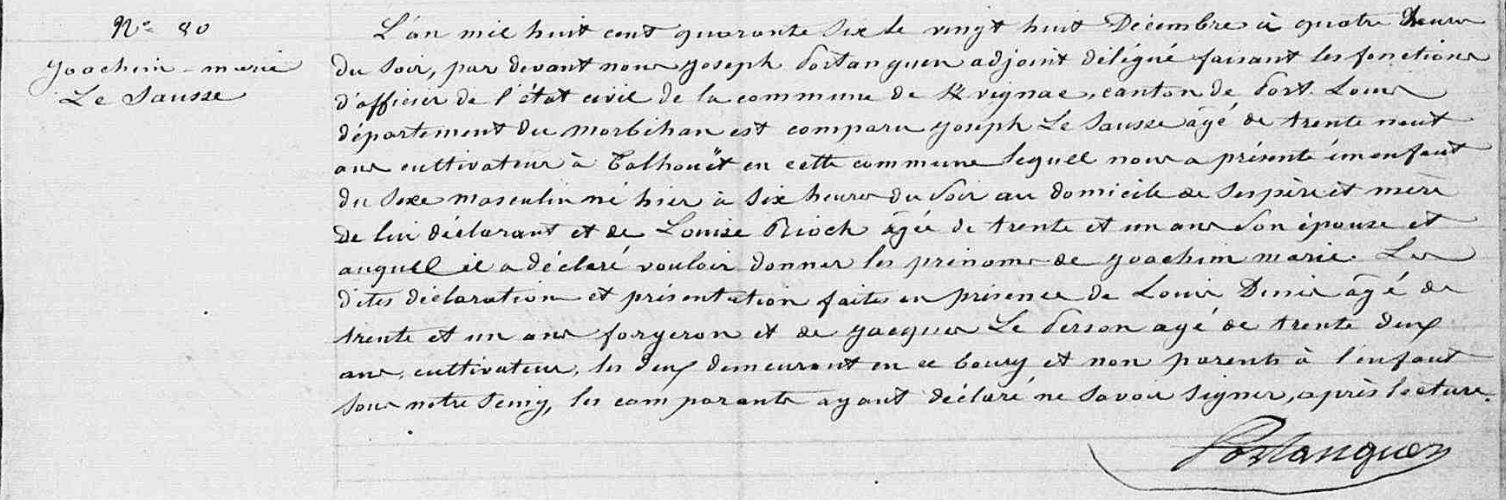 No 80
Joachim-marie
Le Sausse
L'an mil huit cent quarante six le vingt huit Décembre à quatre heures
du soir, par devant nous Joseph Portanguen adjoint délégué faisant les fonctions
d'officier de l'état civil de la commune de Kvignac, canton de Port Louis
département du morbihan est comparu Joseph Le Sausse âgé de trente neuf
ans cultivateur à Talhouët en cette commune lequel nous a présenté un enfant
du sexe masculin né hier à six heures du soir au domicile de ses père et mère
de lui déclarant et de Louise Rioch âgée de trente et un ans son épouse et
auquel il a déclaré vouloir donner les prénoms de Joachim marie. Les
dites déclaration et présentation faites en présence de Louis Denis âgé de
trente et un ans forgeron et de Jacques Le Person agé de trente deux
ans, cultivateur, les deux demeurant en ce bourg et non parents à l'enfant
sous notre seing, les comparants ayant déclaré ne savoir signer, après lecture.
Portanguen